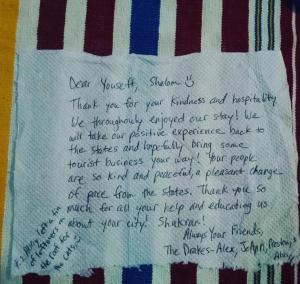 Dear Youseff, Shalom
Thank you for your kindness and hospitality.
We throughouly enjoyed our stay! We
will take our positive experience back to
the states and hopefully bring some
tourist business your way! Your people
are so kind and peaceful, a pleasant change
of pace from the states. Thank you so
much for all your help and educating us
about your city! Shukran!
Always Your Friends,
The Drakes-Alex, JoAnn, Preston,
Abby
P.S. Abby left a tin
of leftovers in
the for
the cats